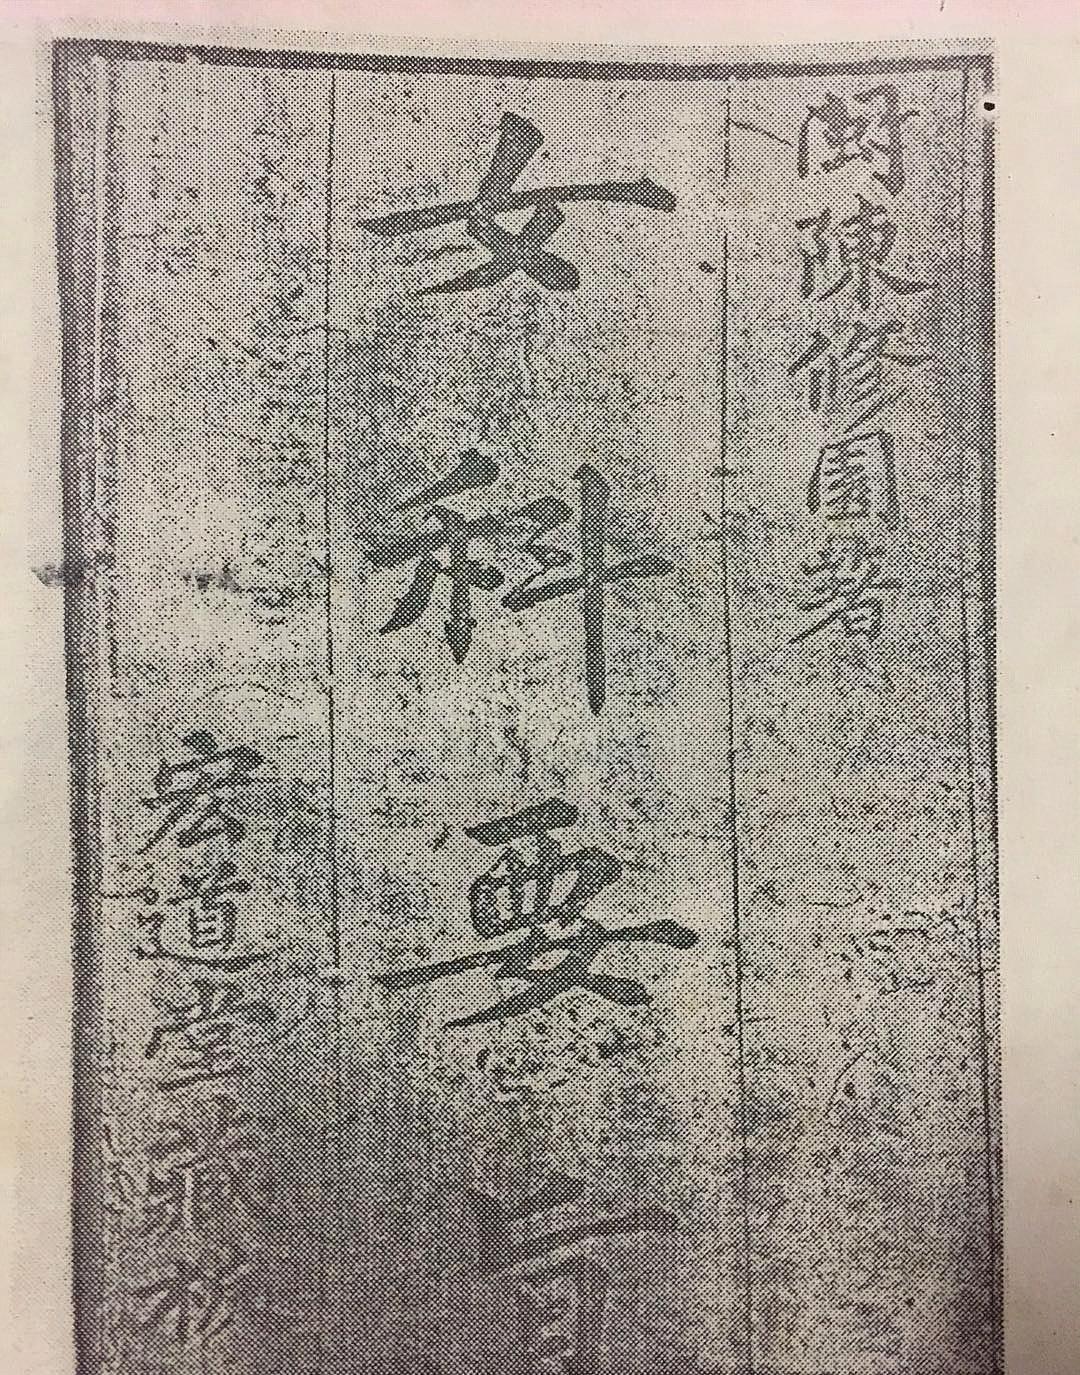 閩陳修園著
女科要旨
宏道堂藏板